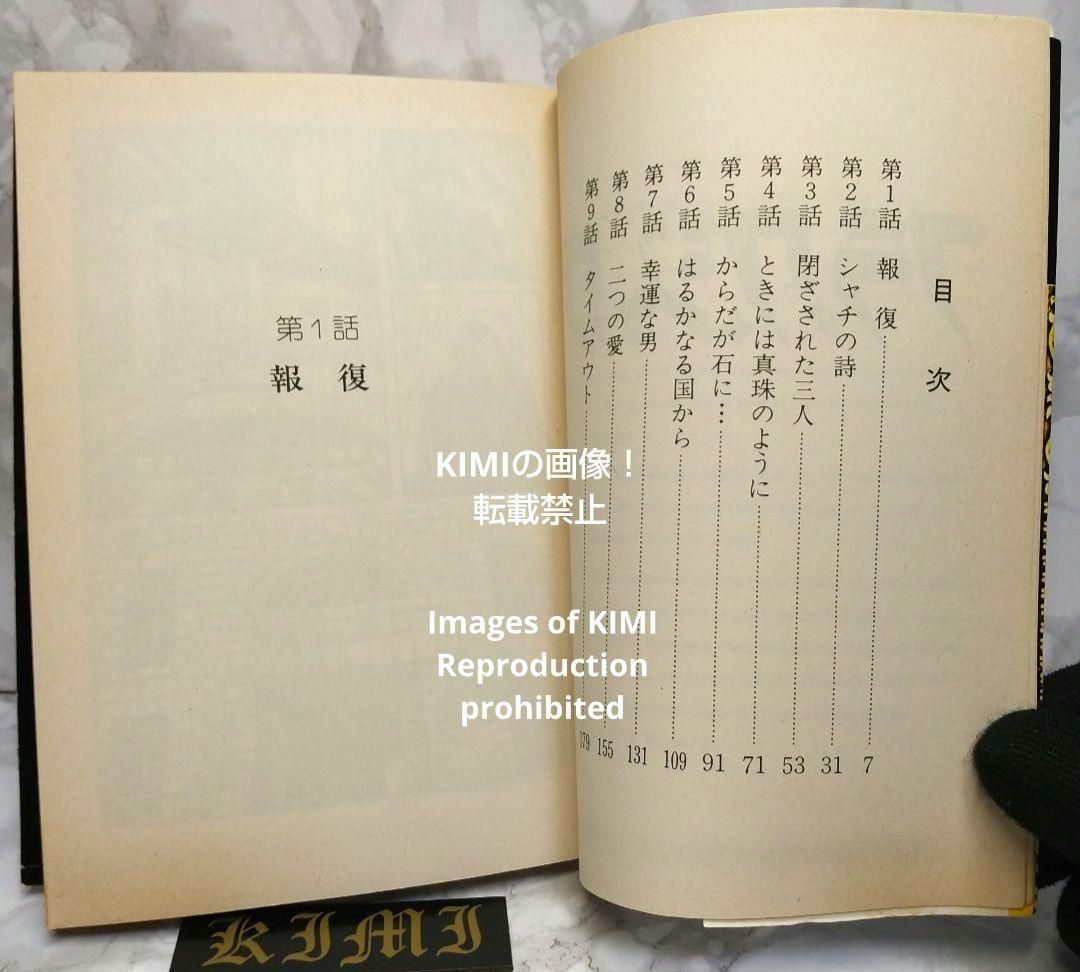 目次
第1話 報復 7
第2話 シャチの詩 31
第3話 閉ざされた三人 53
第4話 ときには真珠のように 71
第5話 からだが石に… 91
第6話 はるかなる国から 109
第7話 幸運な男 131
第8話 二つの愛 155
第9話 タイムアウト 179
第1話
報復
KIMIの画像！
転載禁止
Images of KIMI
Reproduction
prohibited
KIMI